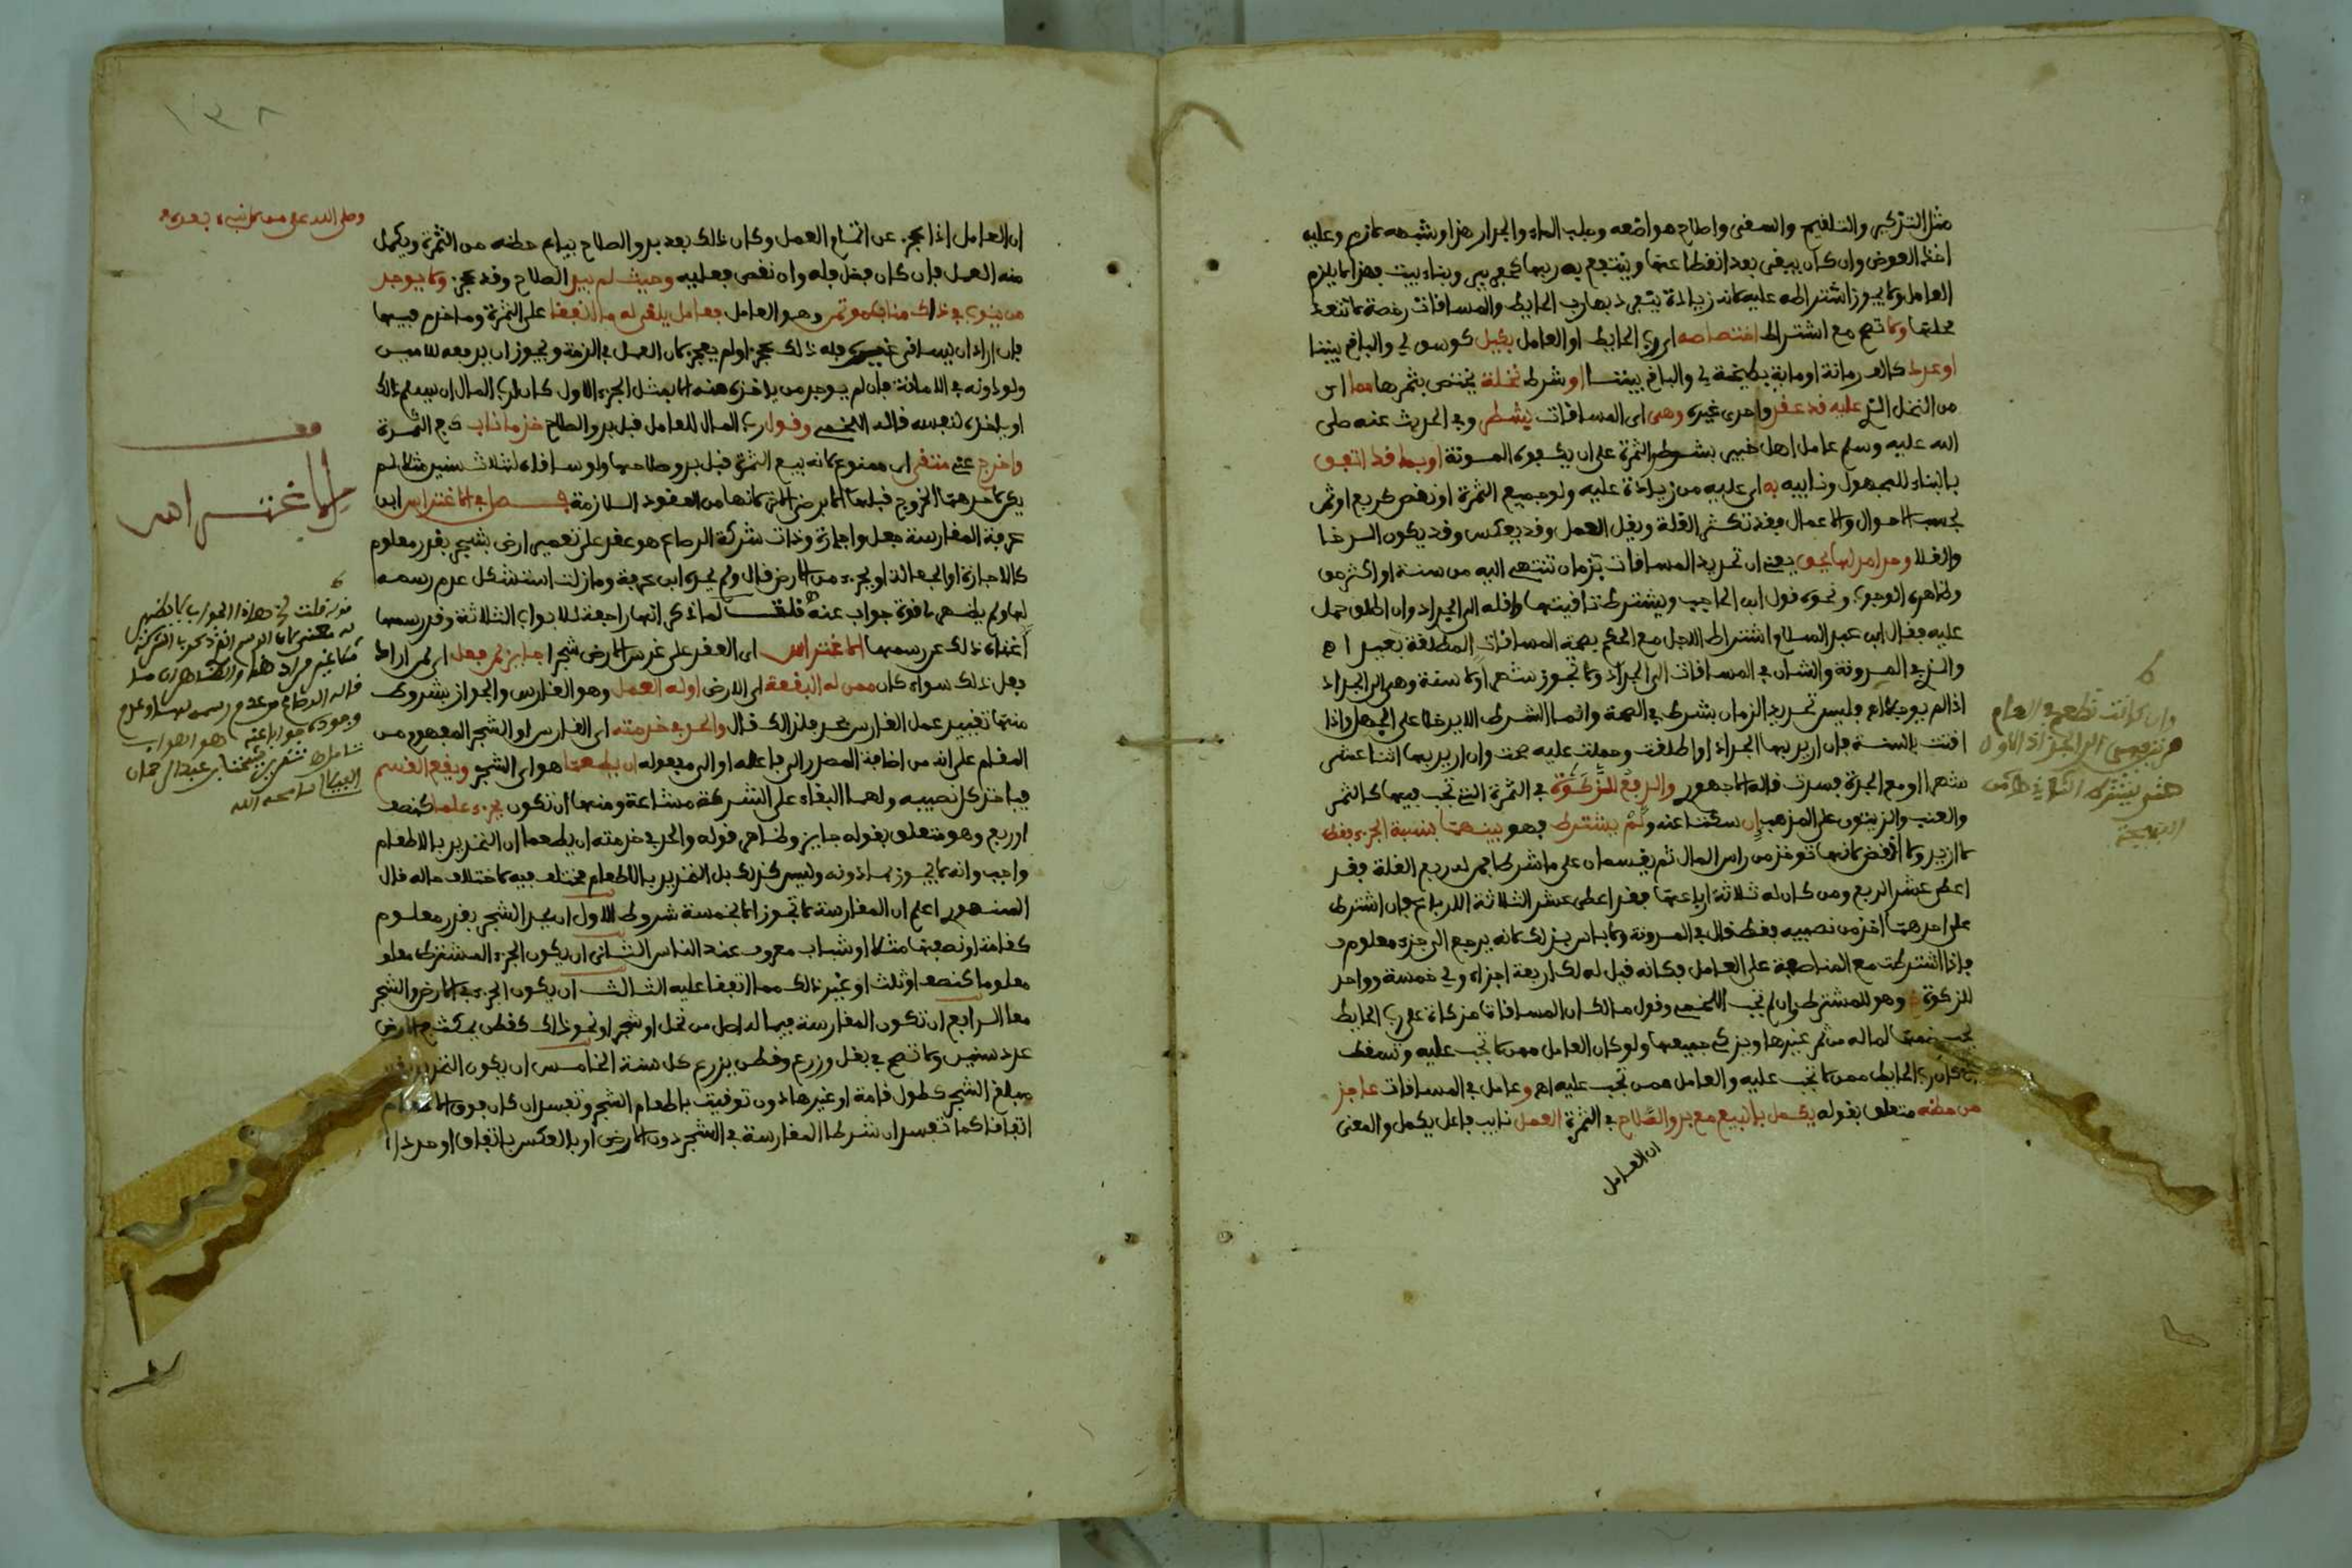 مثل التزكير والتلقيم والسقي واصلاح مواضعه وجلب الماء والجدار هذا وشبهه لازم وعليه
اخذ العوض وان كان يبقى بعد انقطاعها وينتفع به ربها كحفر بير وبناء بيت فهذا لا يلزم
العامل ولا يجوز اشتراطه عليه لانه زيادة ينفرد بها رب الحايط والمسافات رخصة لا تتعد
محلها ولا تصح مع اشتراط اختصاصه اي رب الحايط او العامل بكيل كوسق لي والباقي بيننا
او عدد كالف رمانة او ماية بطيخة لي والباقي بيننا او شرط نخلة يختص بثمرها مما اي
من النخل التي عليه قد عقد واحرى غيره وهي اي المسافات بشطر وفي الحديث عنه صلى
الله عليه وسلم عامل اهل خيبر بشطر الثمرة على ان يكفوه المونة او بما قد اتفق
بالبناء للمجهول ونايبه به اي عليه من زيادة عليه ولو جميع الثمرة او نقص كربع او ثمن
بحسب الاحوال والاعمال فقد تكثر الغلة ويقل العمل وقد يعكس وقد يكون الرخا
والغلا وحد امد لها يحق يعني ان تحديد المسافات بزمان تنتهي اليه من سنة او اكثر حق
وظاهره الوجوب ونحوه قول ابن الحاجب ويشترط تاقيتها واقله الى الجداد وان اطلق حمل
عليه فقال ابن عبد السلام اشتراط الاجل مع الحكم بصحة المسافات المطلقة بعيد اه
والذي في المدونة والشان في المسافات الى الجداد ولا تجوز شهرا ولا سنة وهي الى الجداد
اذا لم يوجلا اه وليس تحديد الزمان بشرط في الصحة وانما الشرط الا يدخلا على الجهل واذا
اقتت بالسنة فان اريد بها الجداد او اطلقت وحملت عليه صحت وان اريد بها اثنا عشر
شهرا او مع الجدة فسدت قاله الاجهوري والدفع للزكوة في الثمرة التي تجب فيها كالتمر
والعنب والزيتون على المذهب ان سكتا عنه ولم يشترط فهو بينهما بنسبة الجزء فقط
لا ازيد ولا انقص لانها توخذ من راس المال ثم يقسمان على ما شرطا فمن له ربع الغلة فقد
اعطى عشر الربع ومن كان له ثلاثة ارباعها فقد اعطى عشر الثلاثة الارباع وان اشترط
على احدهما اخذ من نصيبه فقط قال في المدونة ولا باس بذلك لانه يرجع الى جزء معلوم
فاذا اشترطت مع المناصفة على العامل فكانه قيل له لك اربعة اجزاء ولي خمسة وواحد
للزكوة وهو للمشترط وان لم تجب اللخمي وقول مالك ان المسافاة مزكاة على رب الحايط
يجب ضمها لماله من ثمر غيرها ويزكي جميعها ولو كان العامل ممن لا تجب عليه وتسقط
ان كان رب الحايط ممن لا تجب عليه والعامل ممن تجب عليه اه وعامل في المسافات عاجز
من حظه متعلق بقوله يكمل بالبيع مع بدو الصلاح في الثمرة العمل نايب فاعل يكمل والمعنى
ان العامل
وان كانت تطعم في العام
مرتين فهي الى الجذاذ الاول
حتى يشترط الثاني
ان العامل اذا عجز عن اتمام العمل وكان ذلك بعد بدو الصلاح يباع حظه من الثمرة ويكمل
منه العمل فان كان فضل فله وان نقص فعليه وحيث لم يبد الصلاح وقد عجز ولا يوجد
من ينوب في ذاك مناب موتمن وهو العامل فعامل يلقى له ما اتفقا على الثمرة وما خدم فيها
فان اراد ان يساقي غيره فله ذلك عجز او لم يعجز لان العمل في الذمة ويجوز ان يدفعه لامين
ولو دونه في الامانة فان لم يوجد من ياخذه منه الا بمثل الجزء الاول كان لرب المال ان يسلم ذلك
او ياخذه لنفسه قاله اللخمي وقول رب المال للعامل قبل بدو الصلاح خذ ما ناب دع الثمرة
واخرج عني منتفى اي ممنوع لانه بيع الثمرة قبل بدو صلاحها ولو ساقاه لثلاث سنين مثلا لم
يكن لاحدهما الخروج قبلها الا برضى الاخر لانها من العقود اللازمة فصل في الاغتراس ابن
عرفة المغارسة جعل واجارة وذات شركة الرصاع هو عقد على تعمير ارض بشجر بقدر معلوم
كالاجارة او الجعالة او بجزء من الارض قال ولم يحده ابن عرفة وما زلت استشكل عدم رسمه
لها ولم يظهر لي قوة جواب عنه قلت لما ذكر انها راجعة للابواب الثلاثة وقد رسمها
اغناه ذلك عن رسمها الاغتراس اي العقد على غرس الارض شجرا جايز لمن فعل اي لمن اراد
فعل ذلك سواء كان ممن له البقعة اي الارض او له العمل وهو الغارس والجواز بشروط
منها تقييد عمل الغارس بحد فلذلك قال والحد في خدمته اي الغارس او الشجر المفهوم من
المقام على انه من اضافة المصدر الى فاعله او الى مفعوله ان يطعما هو اي الشجر ويقع القسم
فياخذ كل نصيبه ولهما البقاء على الشركة مشاعة ومنها ان تكون بجزء علما كنصف
او ربع وهو متعلق بقوله جايز وظاهر قوله والحد في خدمته ان يطعما ان التحديد بالاطعام
واجب وانه لا يجوز بما دونه وليس كذلك بل التحديد بالاطعام مختلف فيه لاختلاف حاله قال
المنهوري اعلم ان المغارسة لا تجوز الا بخمسة شروط الاول ان يحد الشجر بقدر معلوم
كقامة او نصفها مثلا او شباب معروف عند الناس الثاني ان يكون الجزء المشترط معلو
معلوما كنصف او ثلث او غير ذلك مما اتفقا عليه الثالث ان يكون الجزء في الارض والشجر
معا الرابع ان تكون المغارسة فيما له اصل من نخل او شجر او نحو ذلك كقطن يمكث في الارض
عدد سنين ولا تصح في بقل وزرع وقطن يزرع كل سنة الخامس ان يكون التحديد
مبلغ الشجر كطول قامة او غيرها دون توقيت باطعام الشجر وتفسد ان كان فوق الاطعام
اتفاقا كما تفسد ان شرطا المغارسة في الشجر دون الارض او بالعكس باتفاق او حددا
وصلى الله على من لا نبي بعده
الاغتراس
قوله قلت
١٣٨